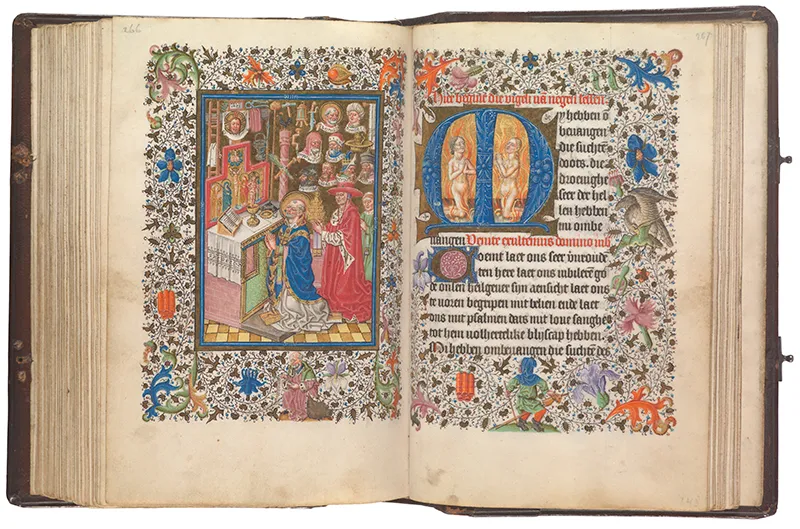 266
267
Hier begint die vigeli vā negen lessen
My hebben ō
beuangen
die suchtē
doots. die
droeuighe
seer der hel
len hebben
mi ombe
uangen Venite exultemus domino iub
Coemt laet ons seer vroude
ten here laet ons iubilerē go
de onsen heilgeuer sijn aensicht laet ons
te uoren begripen mit belien ende laet
ons mit psalmen dats mit loue sanghe
tot hem volhertelike blyscap hebben.
Mi hebben ombeuangen die suchtē des